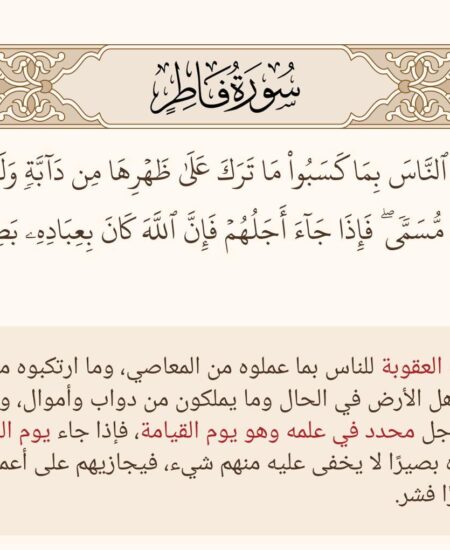 سُورَةُ فَاطِرٍ
ٱلنَّاسَ بِمَا كَسَبُواْ مَا تَرَكَ عَلَىٰ ظَهۡرِهَا مِن دَآبَّةٖ وَلَ
مُّسَمّٗىۖ فَإِذَا جَآءَ أَجَلُهُمۡ فَإِنَّ ٱللَّهَ كَانَ بِعِبَادِهِۦ بَصِ
العقوبة للناس بما عملوه من المعاصي، وما ارتكبوه م
هل الأرض في الحال وما يملكون من دواب وأموال، و
جل محدد في علمه وهو يوم القيامة، فإذا جاء يوم ال
ه بصيرًا لا يخفى عليه منهم شيء، فيجازيهم على أعم
رًا فشر.